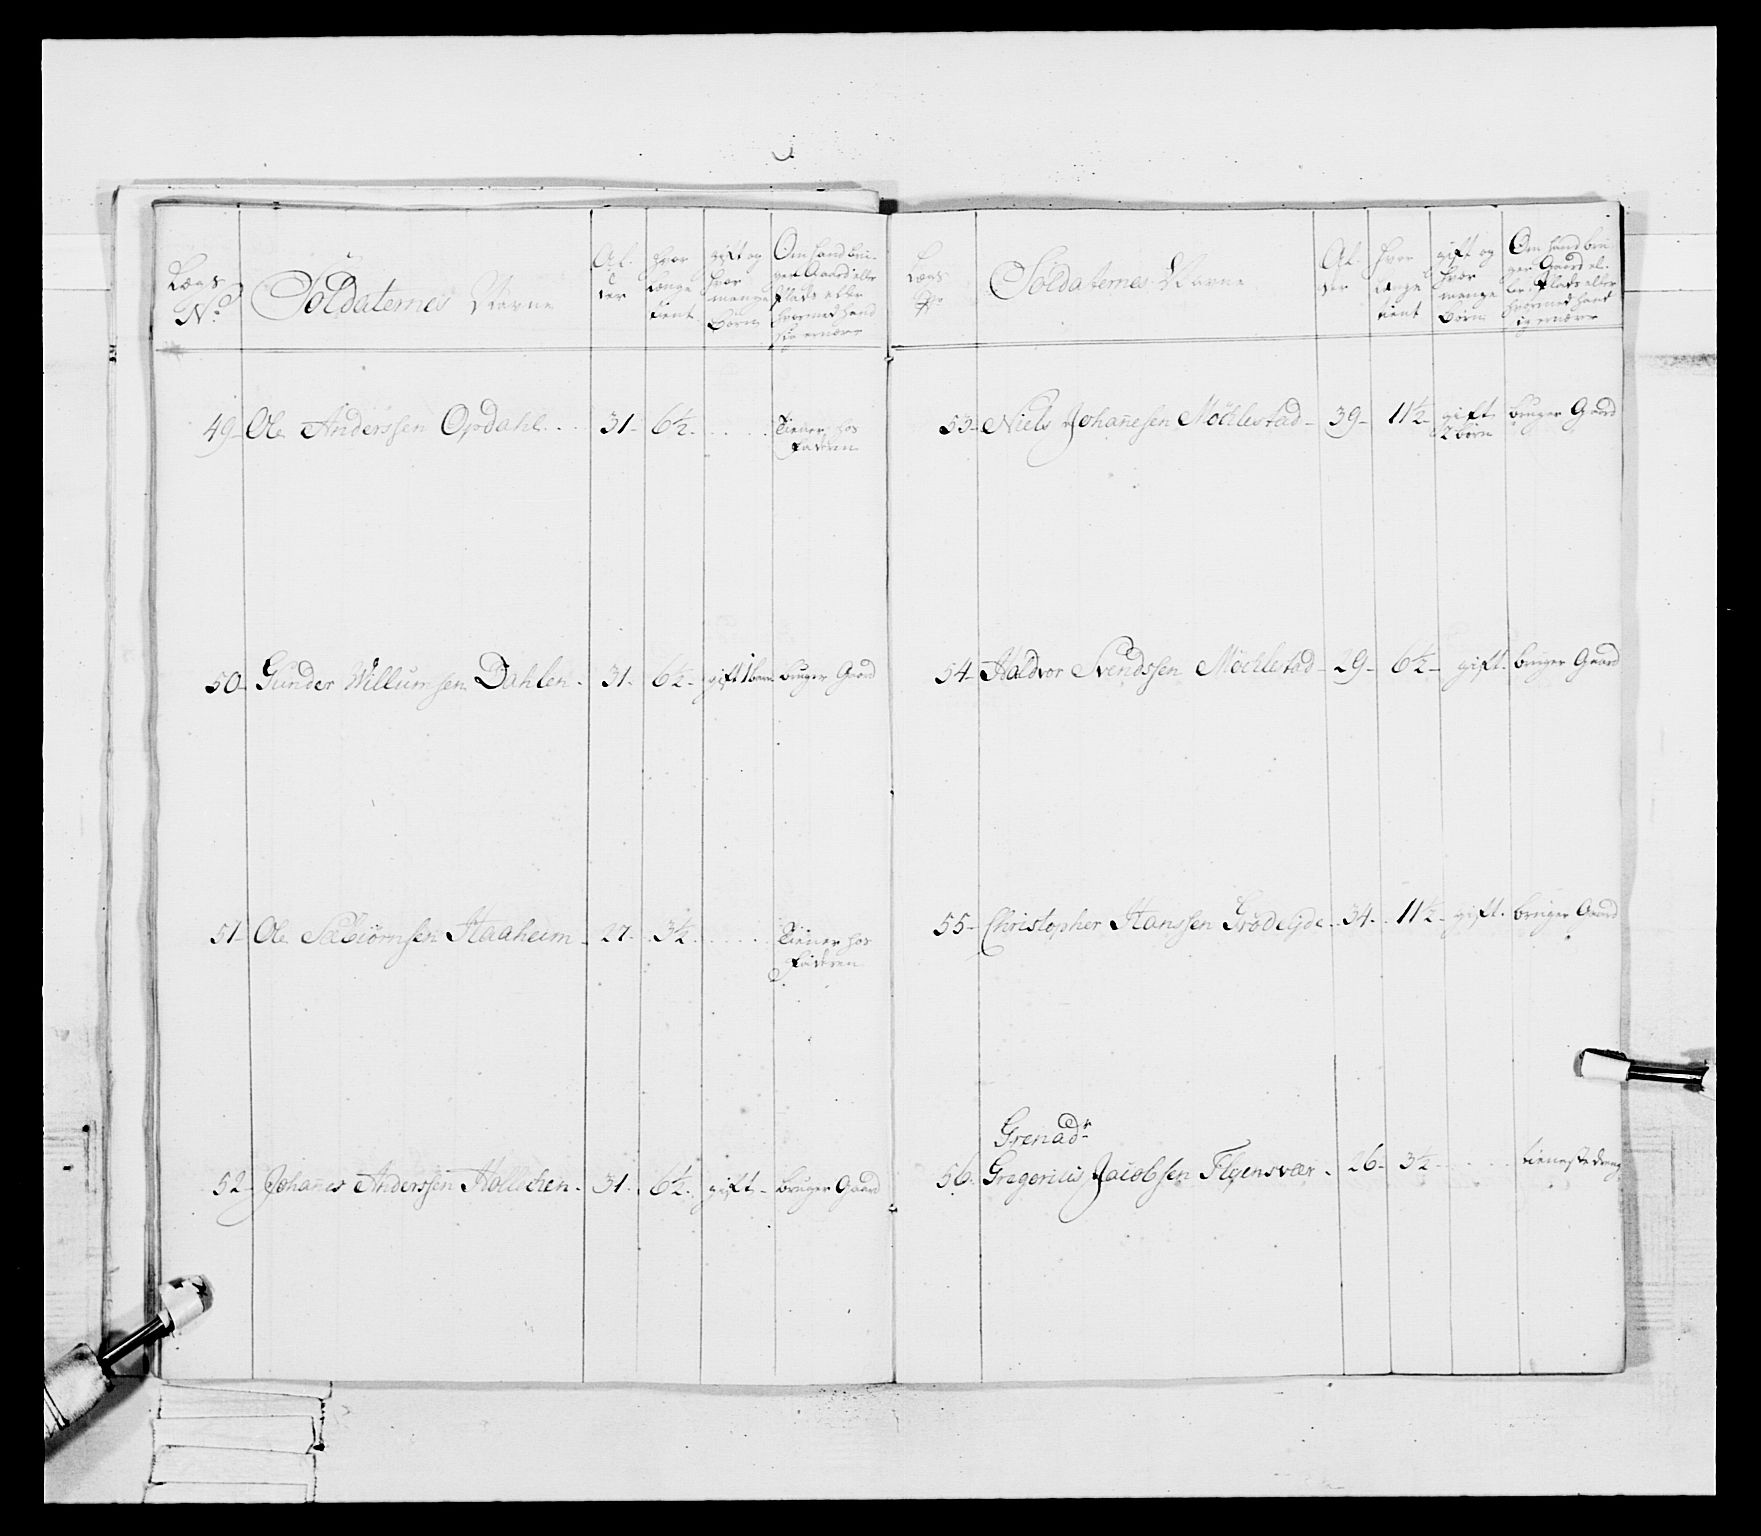 Lægs N.o
Soldaternes Navne
Al- der
hvor længe tient
gift og hvor mange Børn
Om hand bru- ger Gaard eller Plads eller hvormed hand sig ernærer
49- Ole Anderssen Opdahl... 31- 6½- .... Tiener hos Faderen
50- Gunder Willumsen Dahlen. 31- 6½- gift 1 barn bruger Gaard
51- Ole Sæbiörnsen Haaheim - 27. 3½ .... Tiener hos Faderen
52- Johanes Anderssen Hollichen. 31. 6½. gift- bruger Gaard
Lægs No
Soldaternes Navne
Al- der
hvor længe tient
gift og hvor mange Børn
Om hand bru- ger Gaard el- ler Plads eller hvormed hand sig ernærer
53- Niels Johanesen Möchlestad- 39- 11½- gift 2 børn bruger Gaard
54- Haldvor Svendssen Möchlestad- 29- 6½- gift. bruger Gaard
55- Christopher Hanssen 34. 11½- gift. bruger Gaard
Grenadr
56. Gregorius Jacobsen 26- 3½ .... tienestedreng